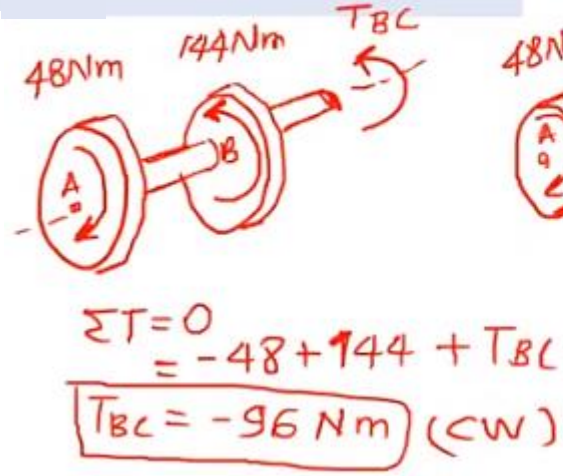 48Nm
144Nm
TBC
48N
A
B
A
ΣT=0
= -48+144 + TBC
TBC = -96 Nm (CW)